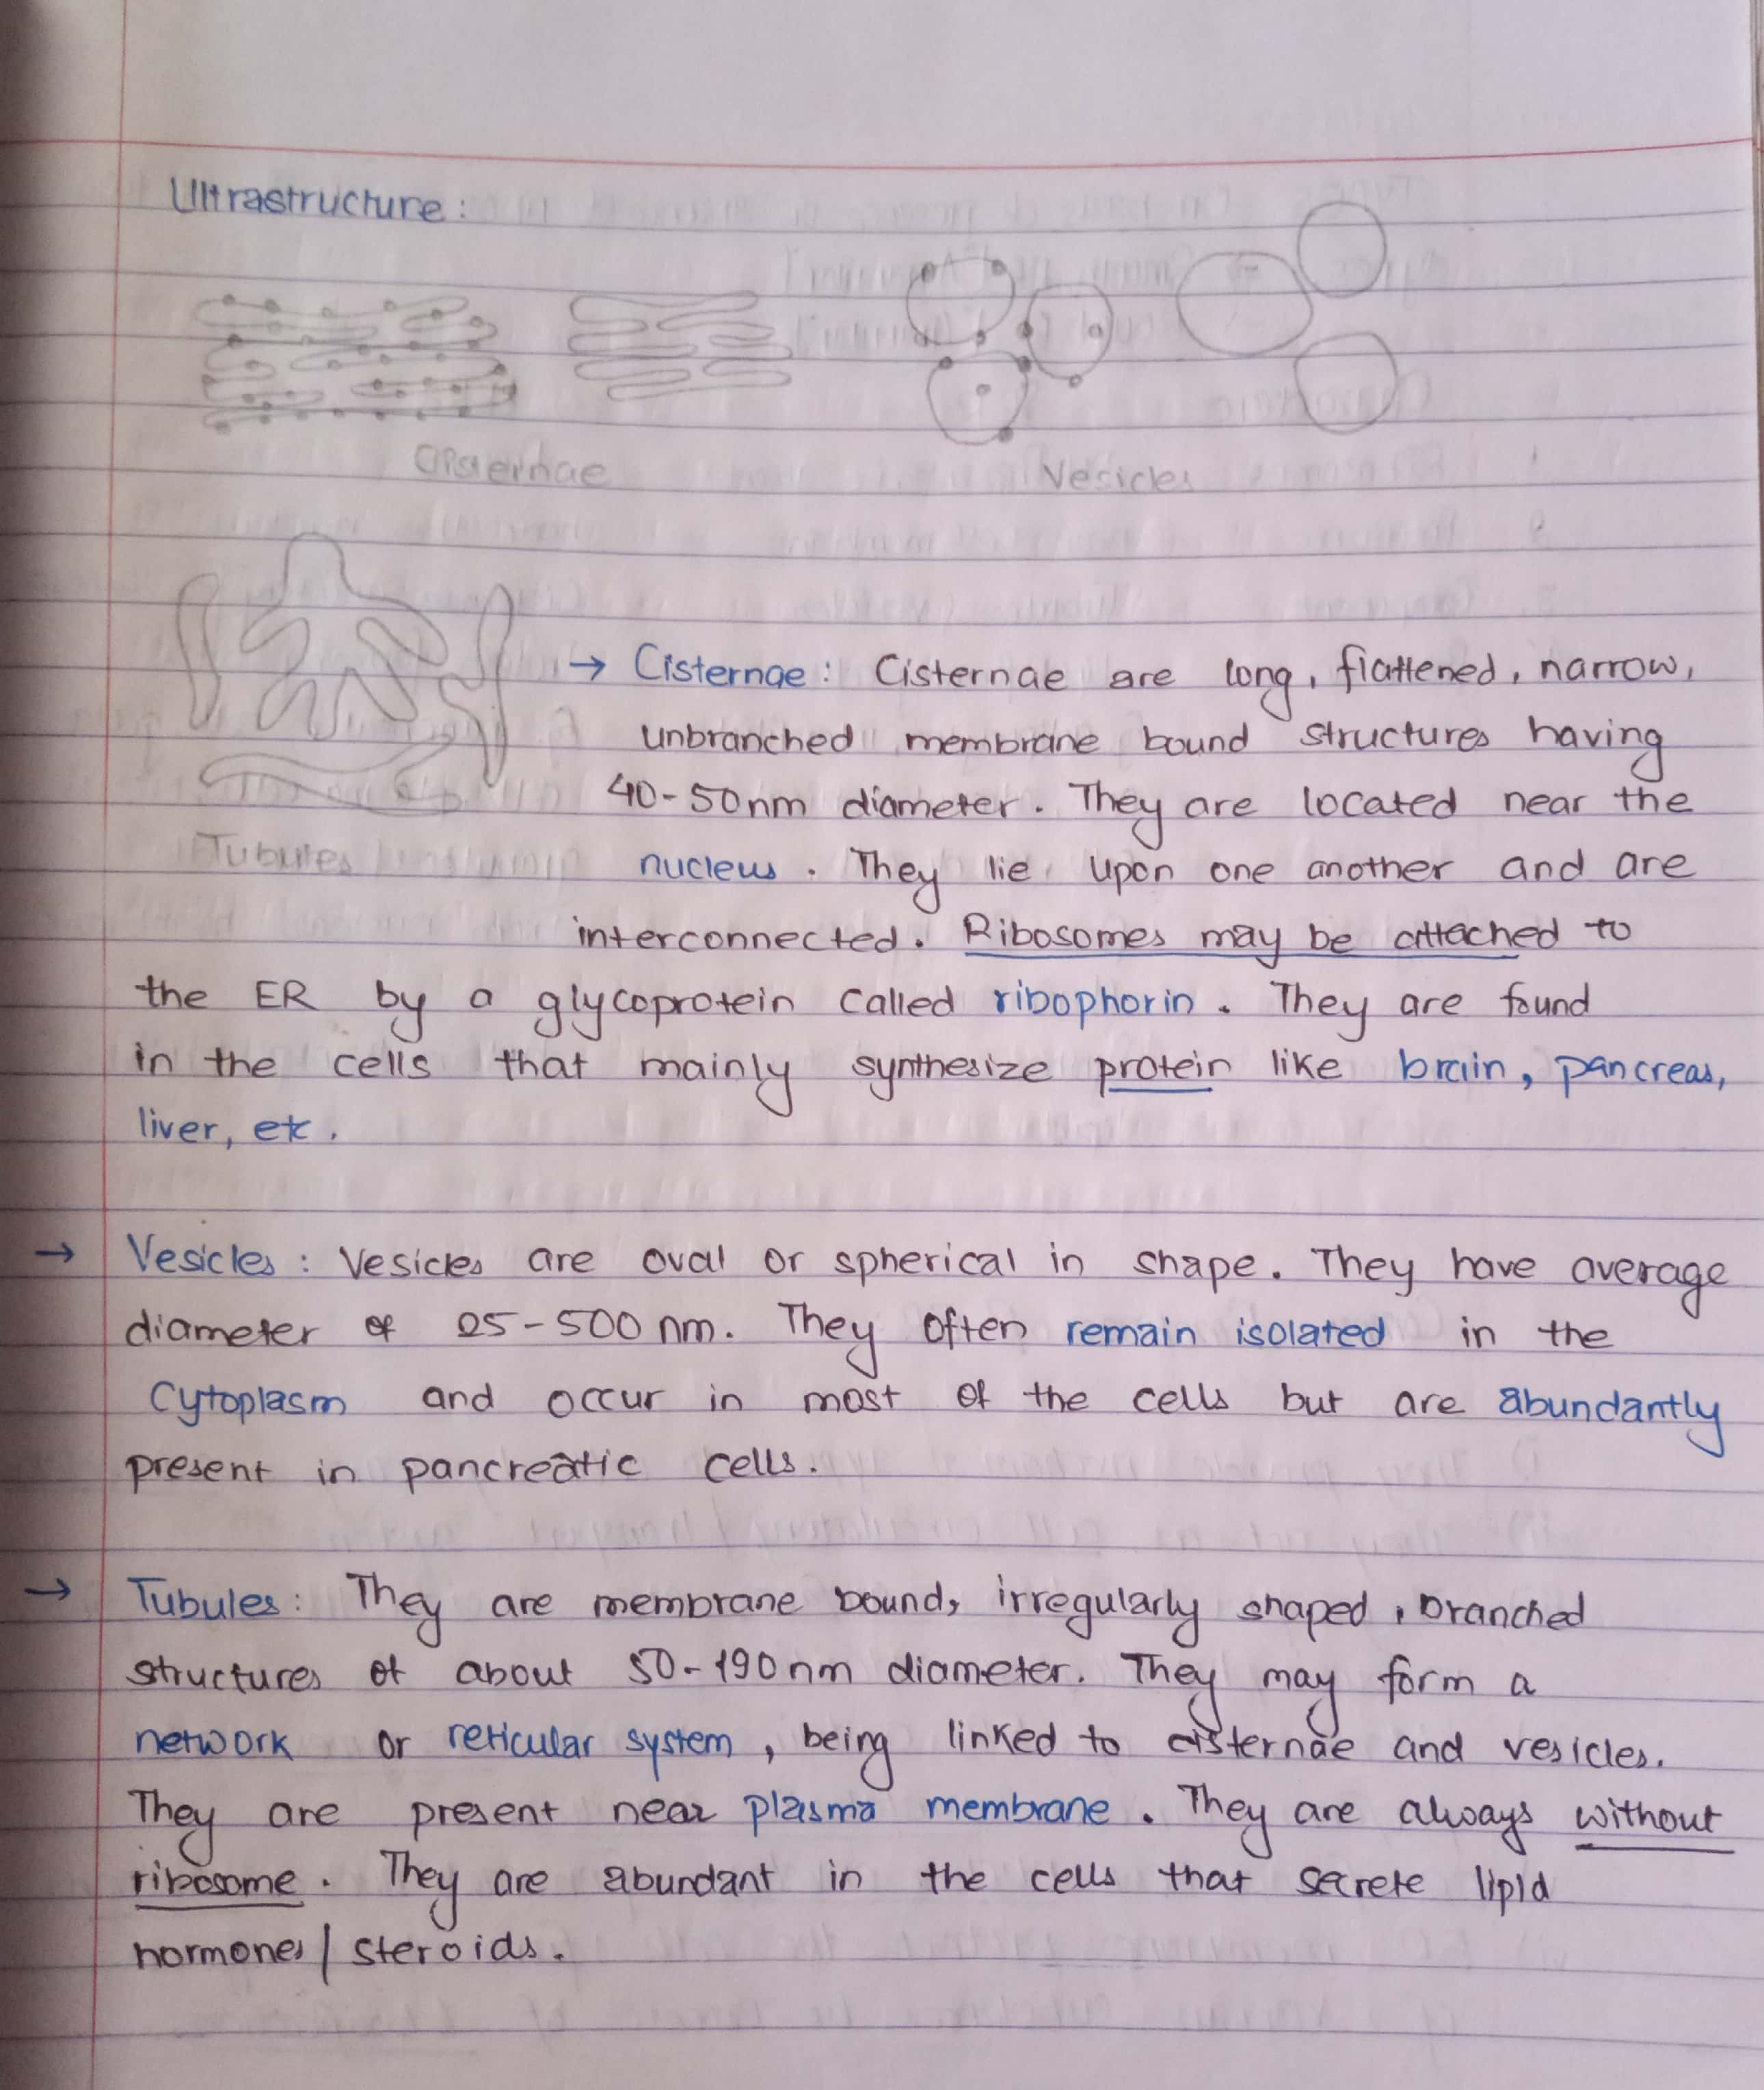 Ultrastructure:
Cisternae
Vesicles
→ Cisternae: Cisternae are long, flattened, narrow,
unbranched membrane bound structures having
40-50nm diameter. They are located near the
Tubules
nucleus. They lie upon one another and are
interconnected. Ribosomes may be attached to
the ER by a glycoprotein called ribophorin. They are found
in the cells that mainly synthesize protein like brain, pancreas,
liver, etc.
→ Vesicles: Vesicles are oval or spherical in shape. They have average
diameter of 25-500 nm. They often remain isolated in the
cytoplasm and occur in most of the cells but are abundantly
present in pancreatic cells.
→ Tubules: They are membrane bound, irregularly shaped, branched
structures of about 50-190nm diameter. They may form a
network or reticular system, being linked to cisternae and vesicles.
They are present near plasma membrane. They are always without
ribosome. They are abundant in the cells that secrete lipid
hormones/steroids.